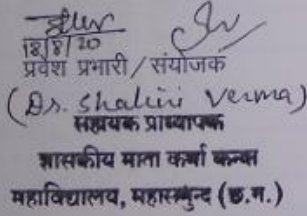 18/8/20
प्रवेश प्रभारी / संयोजक
(Dr. Shalini Verma)
सहायक प्राध्यापक
शासकीय माता कर्मा कन्या
महाविद्यालय, महासमुन्द (छ.ग.)